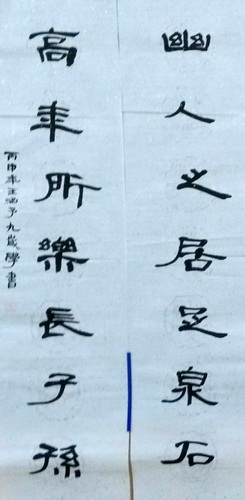 幽人之居足泉石
高年所樂長子孫
丙申年王涵予九歲學書